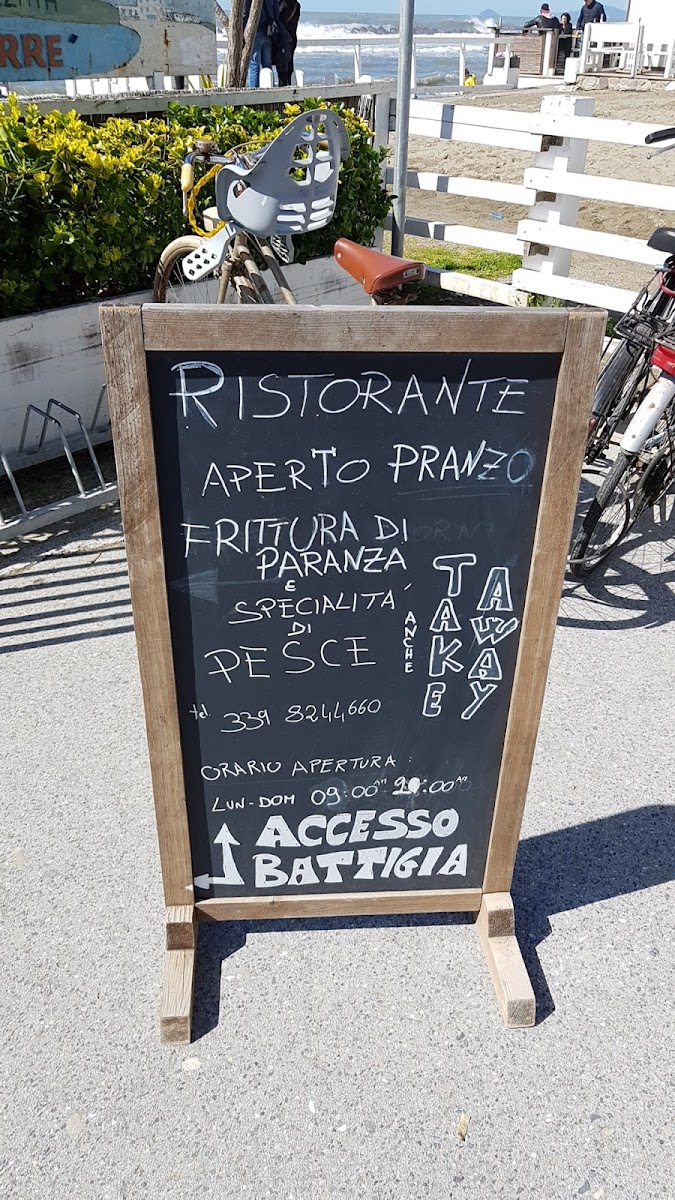 RRE
RISTORANTE
APERTO PRANZO
FRITTURA DI
PARANZA
E
SPECIALITA'
DI
PESCE
ANCHE
TAKE
AWAY
tel. 339 8244660
ORARIO APERTURA:
LUN-DOM 09:00
ACCESSO
BATTIGIA